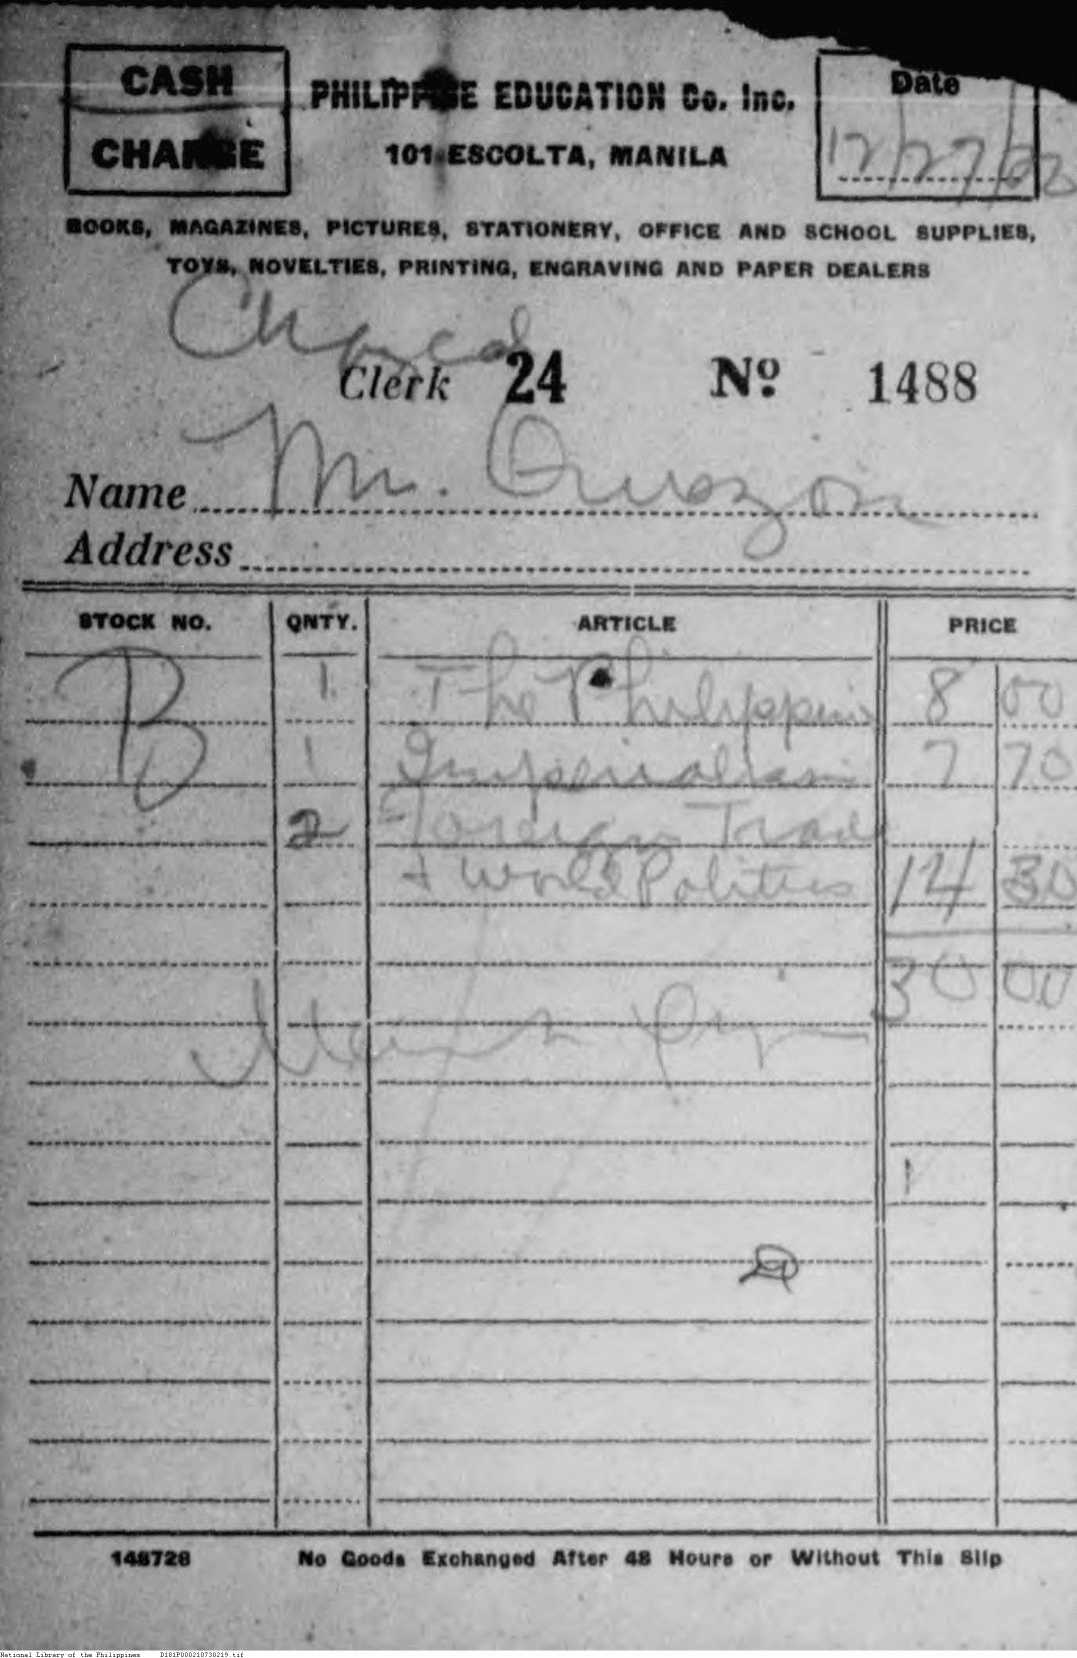 CASH
CHARGE
PHILIPPINE EDUCATION Co. Inc.
101 ESCOLTA, MANILA
Date
12/27/22
BOOKS, MAGAZINES, PICTURES, STATIONERY, OFFICE AND SCHOOL SUPPLIES,
TOYS, NOVELTIES, PRINTING, ENGRAVING AND PAPER DEALERS
Charged
Clerk 24 Nº 1488
Name Mr. Quezon
Address
STOCK NO. QNTY. ARTICLE PRICE
B 1 The Philippines 8 00
1 Imperialism 7 70
2 Foreign Trade
+ World Politics 14 30
30 00
148728 No Goods Exchanged After 48 Hours or Without This Slip
National Library of the Philippines D181P000210730219.tif